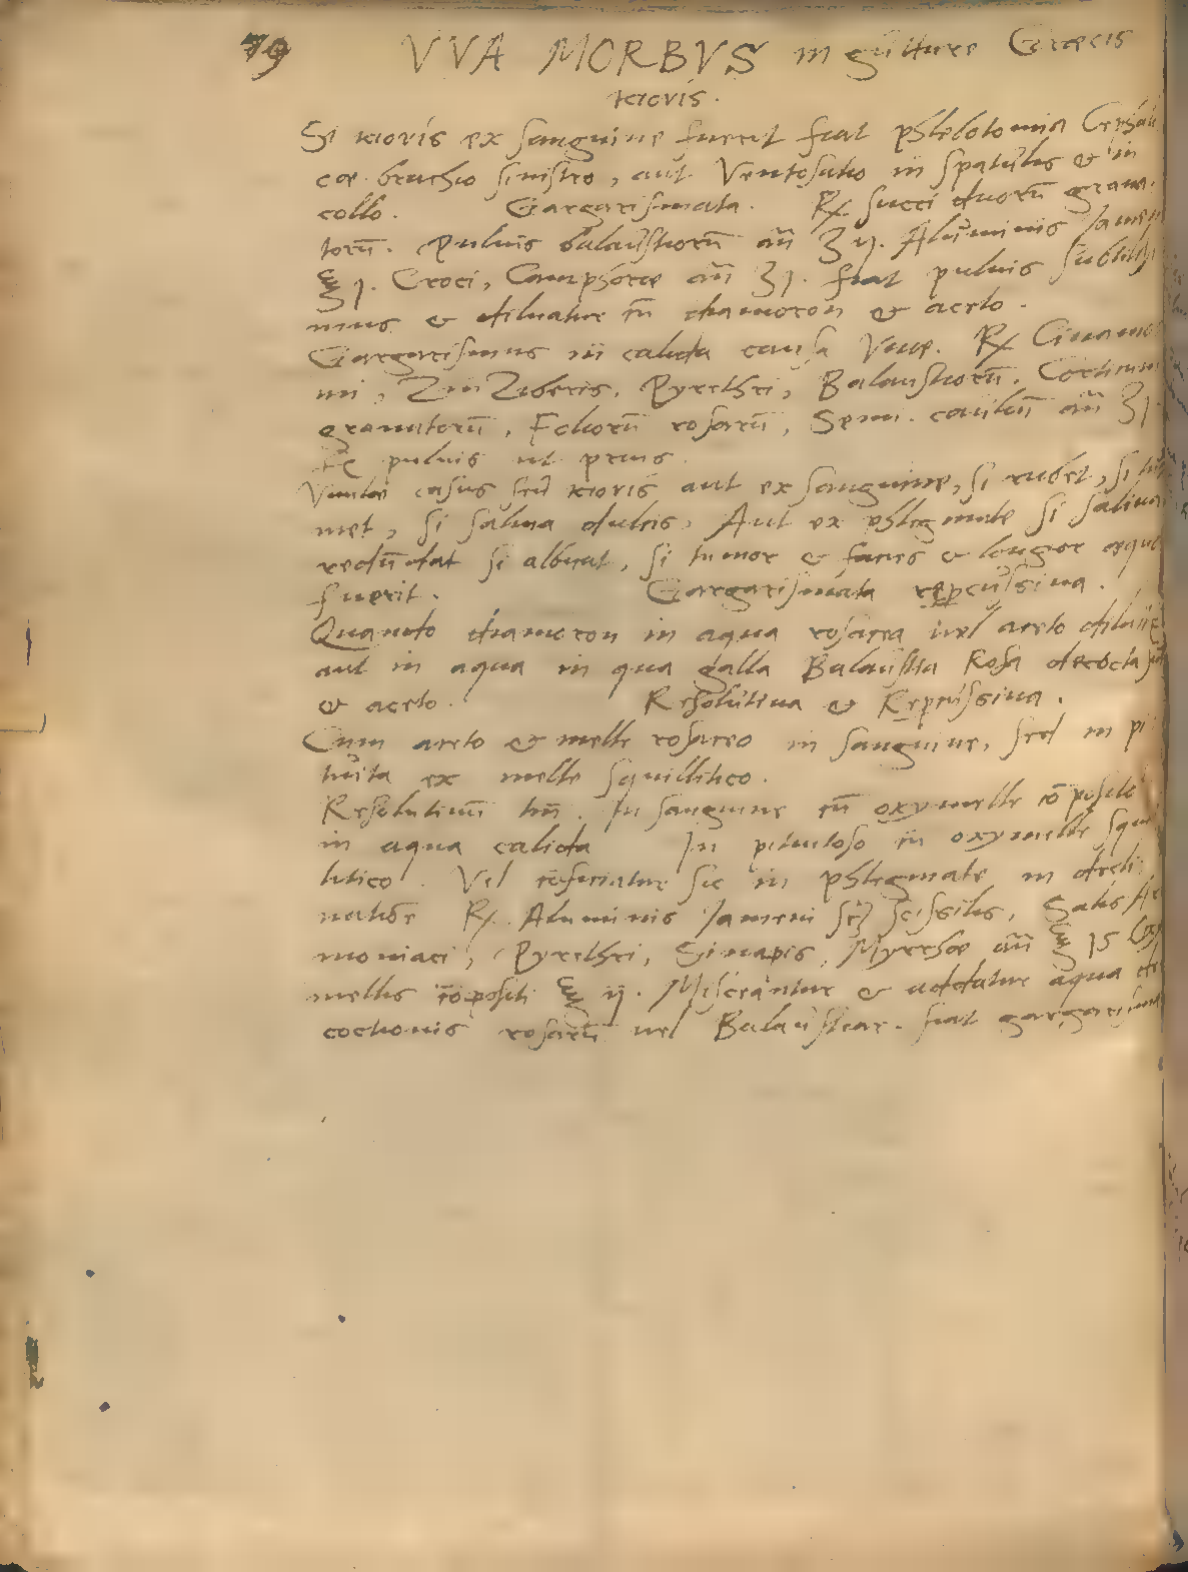 79 VVA MORBVS in gutture Græcis
κιονίς.
Si κιονίς ex sanguine fuerit fiat phlebotomia Cephali
cæ brachio sinistro, aut Ventosatio in spatulis & in
collo. Gargarismata. ℞ succi duorū grana
torū. Puluis balaustiorū añ ʒ ij. Aluminis Iameni
ʒ j. Croci, Camphoræ añ ʒ j. fiat puluis subtilissi
mus & diluatur cū diamoron & aceto.
Gargarismus in calida causa Vuæ. ℞ Cinamo
mi, Zinziberis, Pyrethri, Balaustiorū, Corticum
granatorū, Foliorū rosarū, Semi. caulium añ ʒ j.
puluis ut prius.
Vuulæ casus seu κιονίς aut ex sanguine, si rubet, si tu
met, si saliua dulcis, Aut ex phlegmate si saliua
redūdat si albicat, si tumor & & longior æquo
fuerit. Gargarismata repercussiua.
Quando diamoron in aqua rosacea uel aceto diluitur
aut in aqua in qua galla Balaustia Rosa decocta
& aceto. Resolutiua & Repcussiua.
Cum aceto & melle rosaceo in sanguine, sed in pi
tuita ex melle squillitico.
Resolutiuū tm̄. In sanguine cū oxymelle cōposito
in aqua calida In pituitoso cū oxymelle squi
litico. Vel cōficiatur sic in phlegmate in decli
natiōe ℞. Aluminis Iameni scissilis, Salis Ar
moniaci, Pyrethri, Sinapis, Myrrhæ añ Oxy
mellis cōpositi ij. Misceantur & addatur aqua de
coctionis rosarū uel Balaustiar. fiat gargarisma